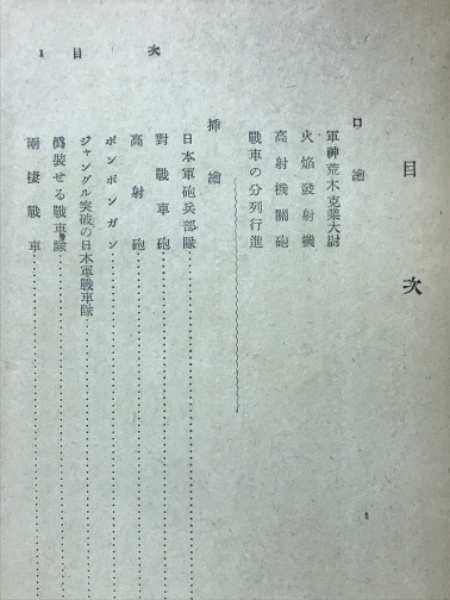 次　目　1
目次
口繪
軍神荒木克業大尉
火焔發射機
高射機關砲
戰車の分列行進
揷繪
日本軍砲兵部隊
對戰車砲
高射砲
ポンポンガン
ジャングル突破の日本軍戰車隊
僞裝せる戰車隊
兩棲戰車